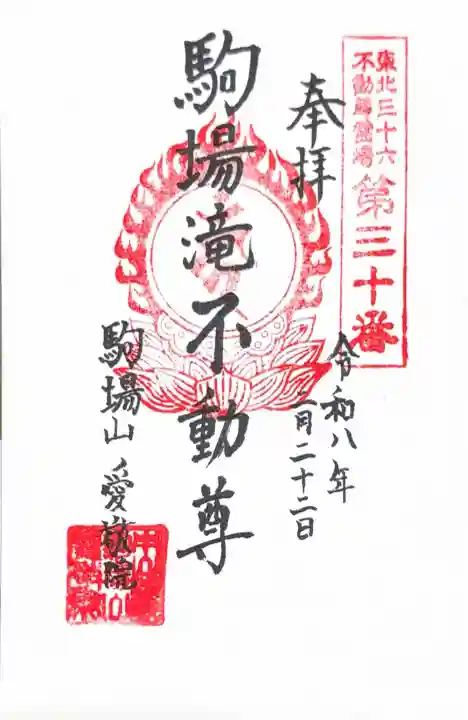 東北三十六
不動尊霊場
第三十番
奉拝
令和八年
二月二十二日
駒場滝不動尊
駒場山